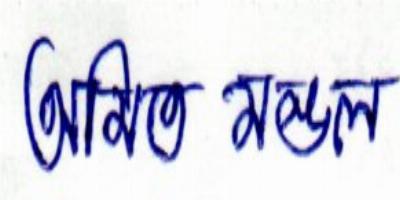 অমিত মন্ডল